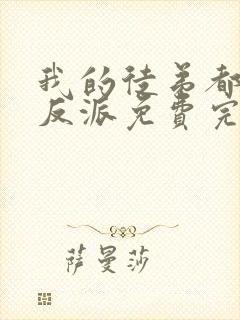 我的徒弟都
反派免费完
萨曼莎